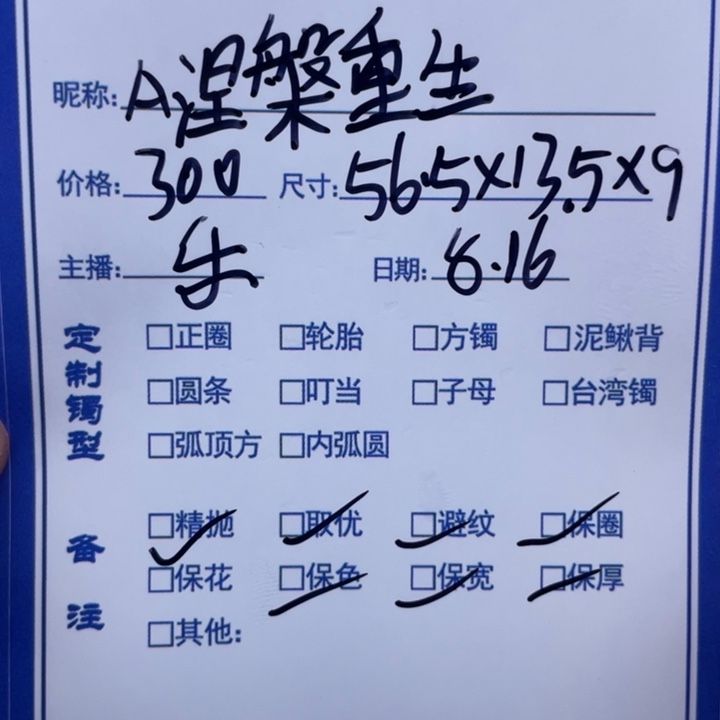 昵称:A涅槃重生
价格:300 尺寸:56.5×13.5×9
主播: 日期:8.16
定制镯型
□正圈 □轮胎 □方镯 □泥鳅背
□圆条 □叮当 □子母 □台湾镯
□弧顶方 □内弧圆
备注
□精抛 □取优 □避纹 □保圈
□保花 □保色 □保宽 □保厚
□其他: